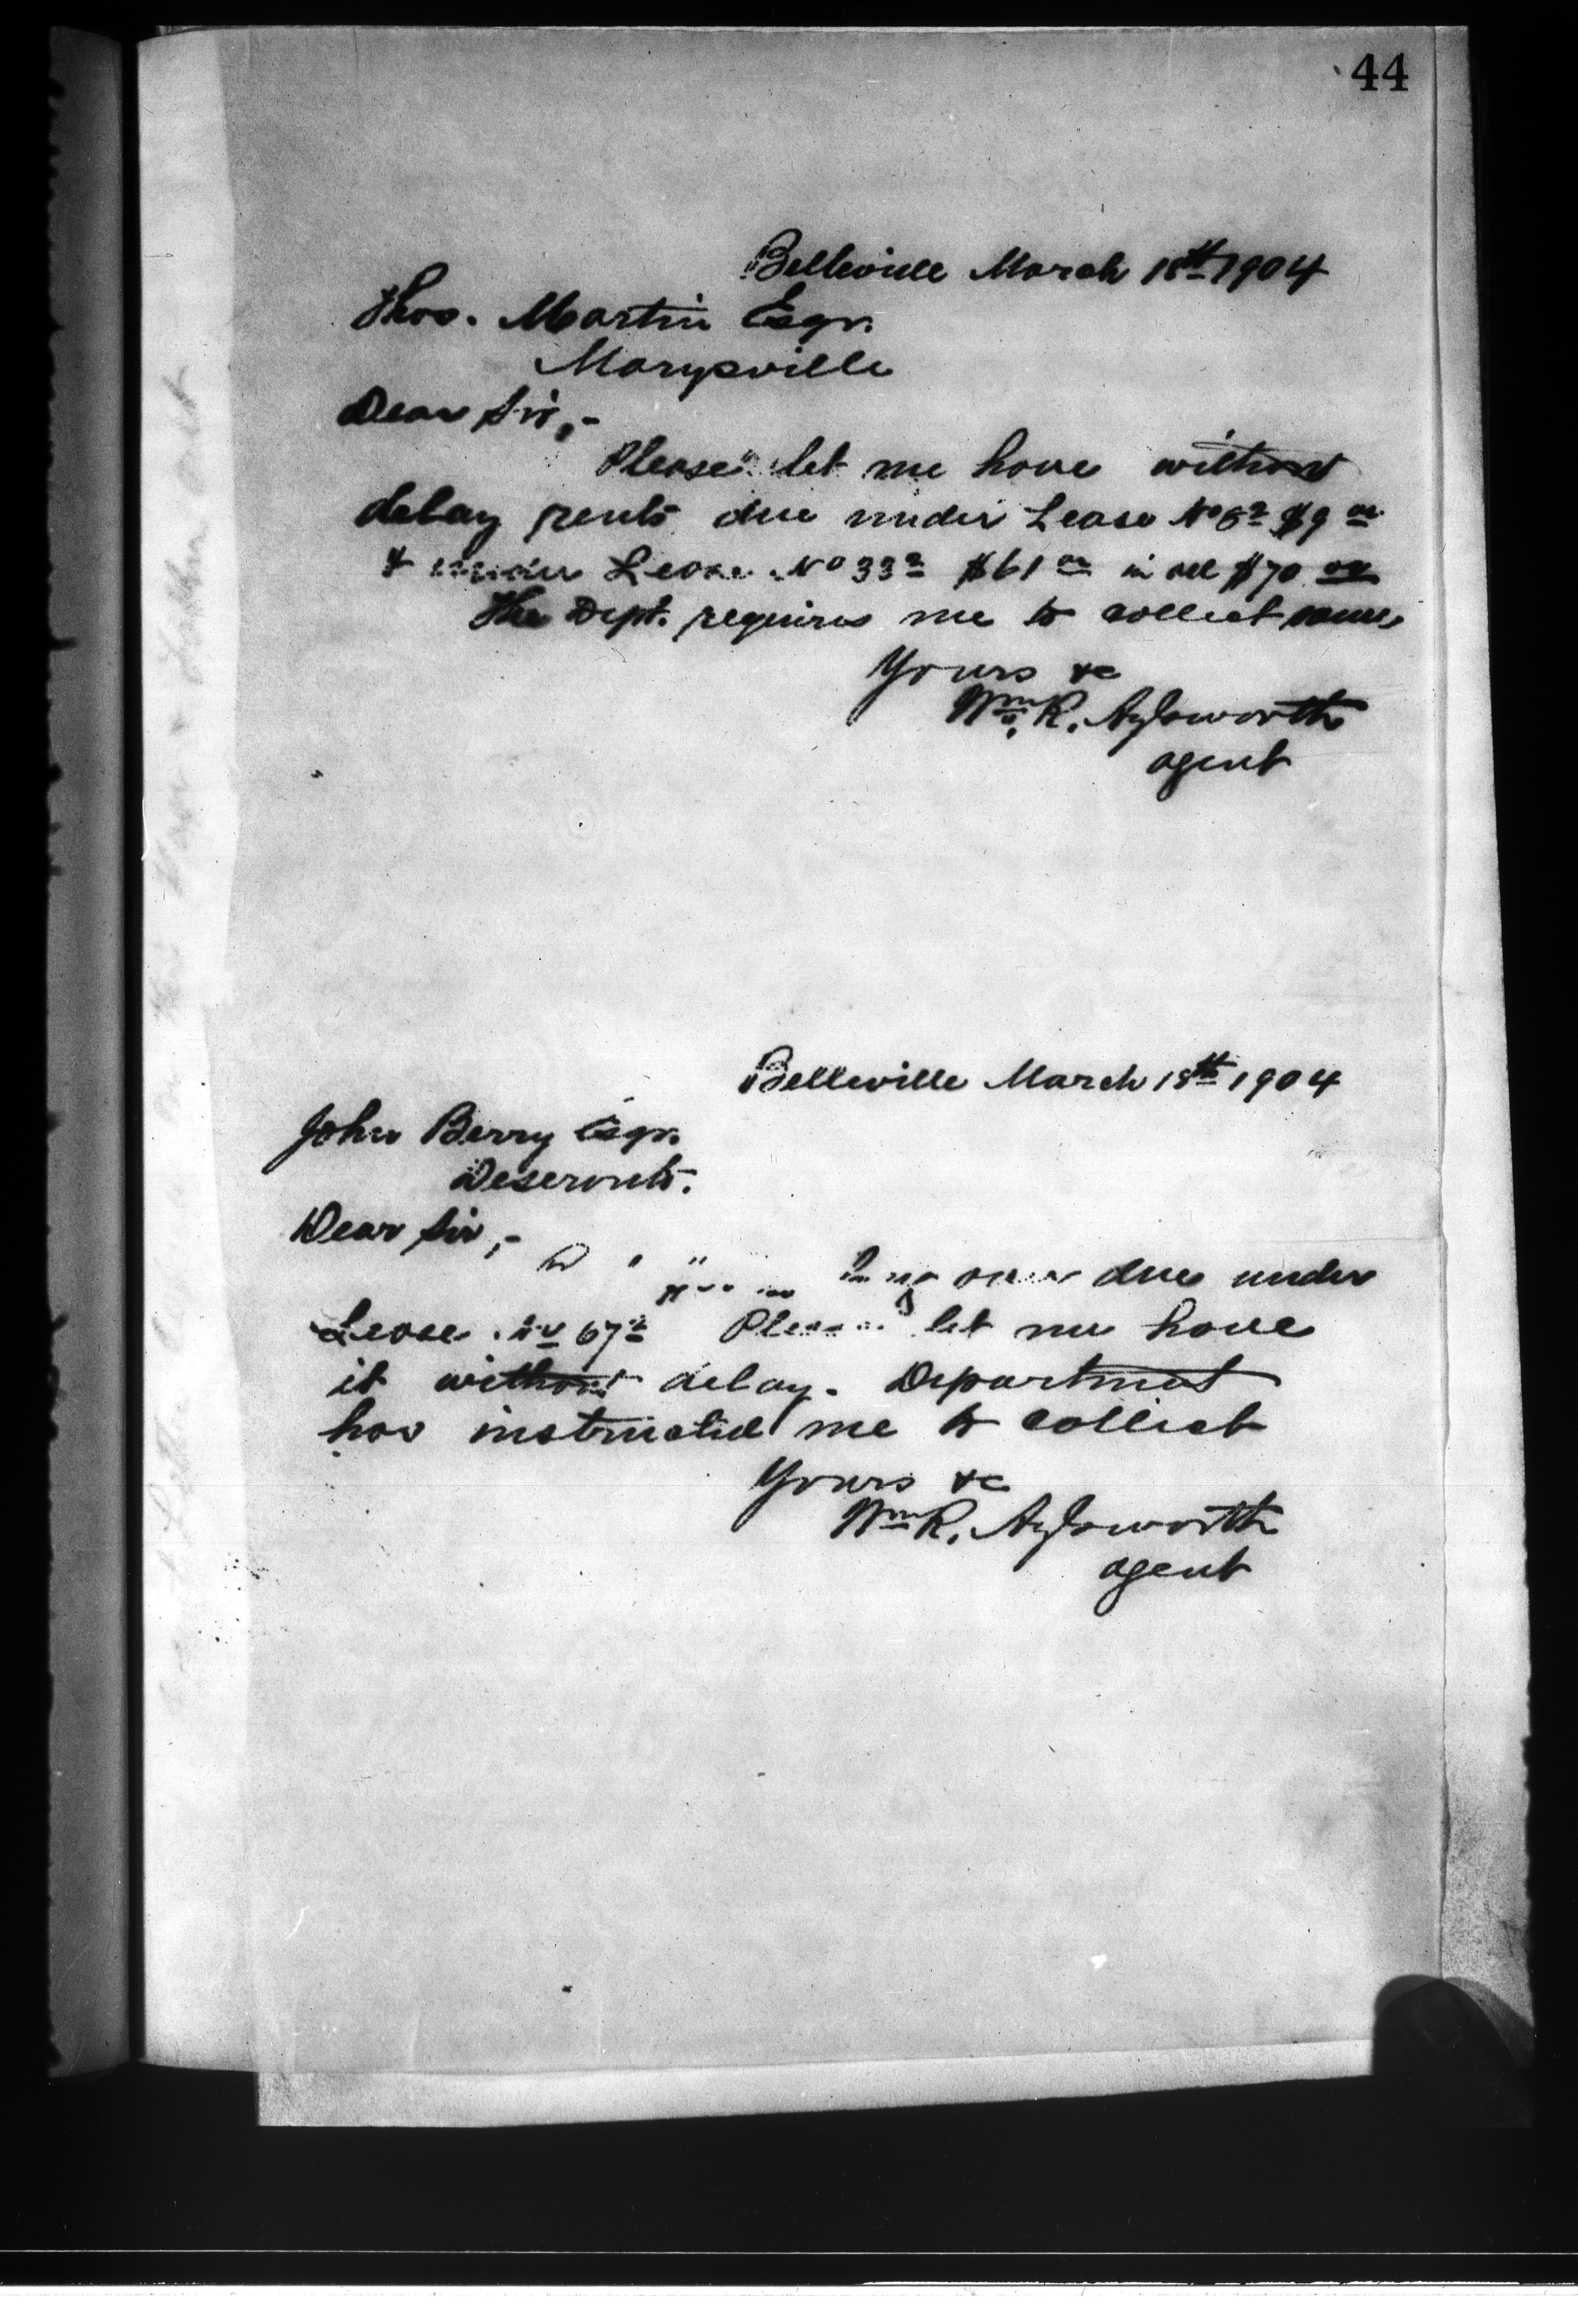 44
Belleville March 18th 1904
Thos. Martin Esqr.
Marysville
Dear Sir,-
Please let me have without
delay rents due under Lease No $9 00
& under Lease No 33 $61 00 in all $70 00
The Dept. requires me to collect same,
Yours &c
Wm R. Aylsworth
agent
Belleville March 18th 1904
John Berry Esqr.
Deseronto.
Dear Sir,-
due under
Lease No 67 Please let me have
it without delay. Department
has instructed me to collect
Yours &c
Wm R. Aylsworth
agent